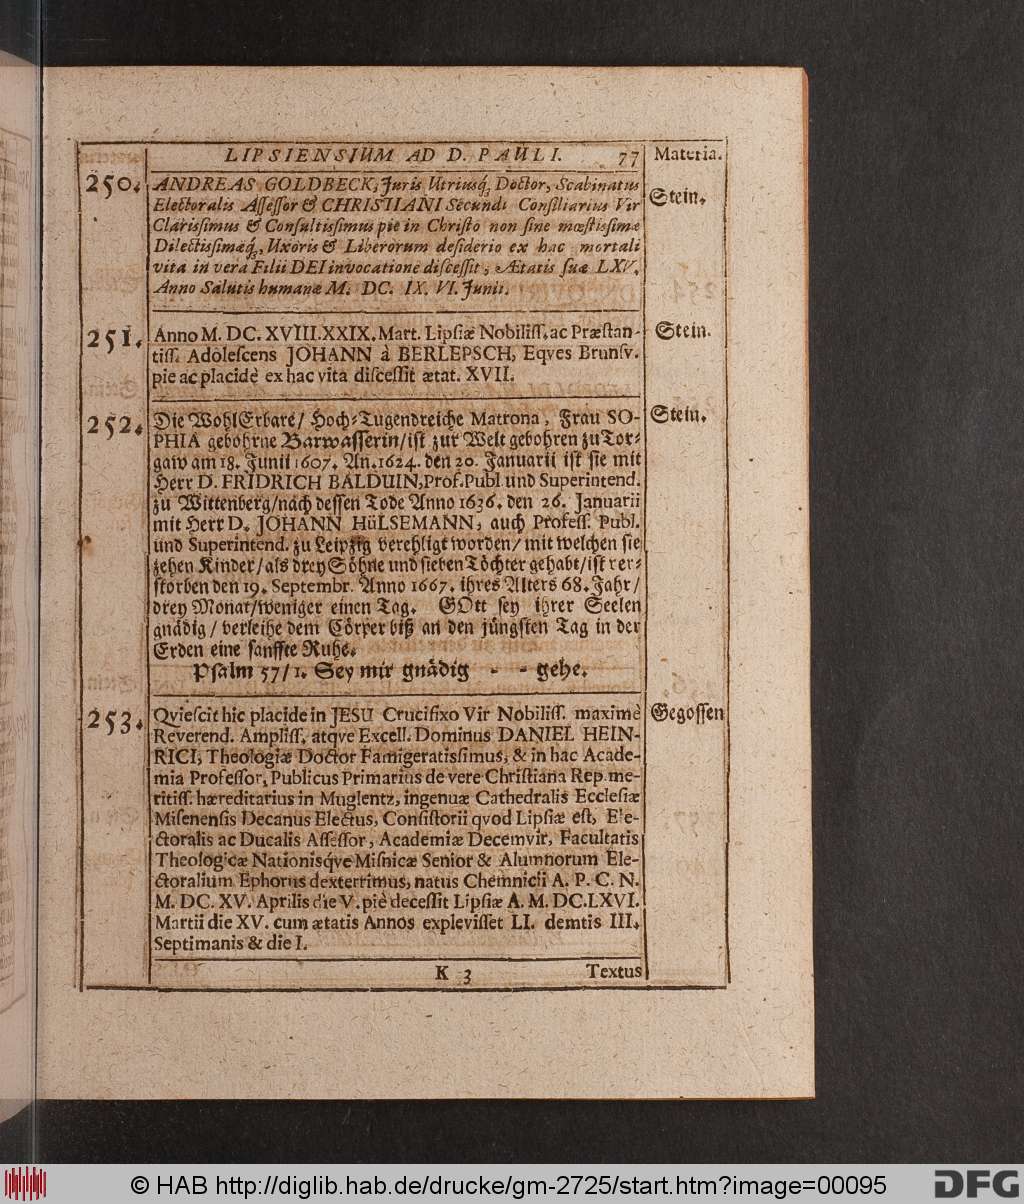 LIPSIENSIUM AD D. PAULI. 77 Materia.
250. ANDREAS GOLDBECK, Juris Utriusq́, Doctor, Scabinatus Stein.
Electoralis Aſſeſſor & CHRISTIANI Secundi Conſiliarius Vir
Clarisſimus & Conſultisſimus pie in Chriſto non ſine mœſtisſimæ
Dilectisſimæq́, Uxoris & Liberorum deſiderio ex hac mortali
vita in vera Filii DEI invocatione diſceſſit, Ætatis ſuæ LXV.
Anno Salutis humanæ M. DC. IX. VI. Junii.
251. Anno M. DC. XVIII. XXIX. Mart. Lipſiæ Nobiliſſ. ac Præſtan- Stein.
tiſſ. Adoleſcens JOHANN à BERLEPSCH, Eqves Brunſv.
pie ac placidè ex hac vita diſceſſit ætat. XVII.
252. Die WohlErbare/ Hoch-Tugendreiche Matrona, Frau SO- Stein.
PHIA gebohrne Barwaſſerin/ iſt zur Welt gebohren zu Tor-
gaw am 18. Junii 1607. An. 1624. den 20. Januarii iſt ſie mit
Herr D. FRIDRICH BALDUIN, Prof. Publ und Superintend.
zu Wittenberg/ nach deſſen Tode Anno 1636. den 26. Januarii
mit Herr D. JOHANN HüLSEMANN, auch Profeſſ. Publ.
und Superintend. zu Leipzig verehligt worden/ mit welchen ſie
zehen Kinder/ als drey Söhne und ſieben Töchter gehabt/ iſt ver-
ſtorben den 19. Septembr. Anno 1667. ihres Alters 68. Jahr/
drey Monat/ weniger einen Tag. GOtt ſey ihrer Seelen
gnädig/ verleihe dem Cörper biß an den jüngſten Tag in der
Erden eine ſanffte Ruhe.
Pſalm 57/1. Sey mir gnädig - - gehe.
253. Qvieſcit hic placide in JESU Crucifixo Vir Nobiliſſ. maximè Gegoſſen
Reverend. Ampliſſ. atqve Excell. Dominus DANIEL HEIN-
RICI, Theologiæ Doctor Famigeratisſimus, & in hac Acade-
mia Profeſſor, Publicus Primarius de vere Chriſtiana Rep. me-
ritiſſ. hæreditarius in Muglentz, ingenuæ Cathedralis Eccleſiæ
Miſenenſis Decanus Electus, Conſiſtorii qvod Lipſiæ eſt, Ele-
ctoralis ac Ducalis Aſſeſſor, Academiæ Decemvir, Facultatis
Theologicæ Nationisq́ve Miſnicæ Senior & Alumnorum Ele-
ctoralium Ephorus dexterrimus, natus Chemnicii A. P. C. N.
M. DC. XV. Aprilis die V. piè deceſſit Lipſiæ A. M. DC. LXVI.
Martii die XV. cum ætatis Annos expleviſſet LI. demtis III.
Septimanis & die I.
K 3 Textus
© HAB http://diglib.hab.de/drucke/gm-2725/start.htm?image=00095
DFG